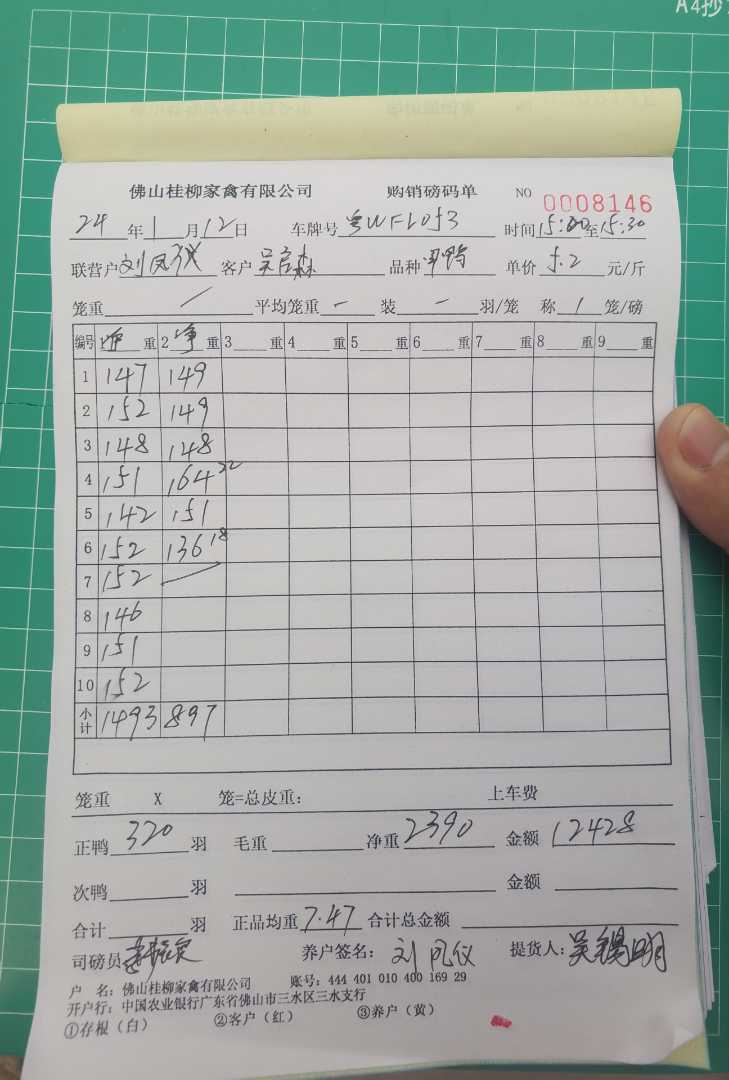 A4抄
佛山桂柳家禽有限公司 购销磅码单 NO 0008146
24年1月12日 车牌号粤WFL053 时间15:00至15:30
联营户刘凤仪 客户吴启森 品种 单价5.2元/斤
笼重／ 平均笼重－ 装－羽/笼 称1笼/磅
编号 1净重 2净重 3重 4重 5重 6重 7重 8重 9重
1 147 149
2 152 149
3 148 148
4 151 164 22
5 142 151
6 152 136 18
7 152
8 146
9 151
10 152
小计 1493 897
笼重 X 笼=总皮重： 上车费
正鸭320羽 毛重 净重2390 金额12428
次鸭 羽 金额
合计 羽 正品均重7.47 合计总金额
司磅员 养户签名：刘凤仪 提货人：吴锡明
户 名：佛山桂柳家禽有限公司 账号：444 401 010 400 169 29
开户行：中国农业银行广东省佛山市三水区三水支行
①存根（白） ②客户（红） ③养户（黄）